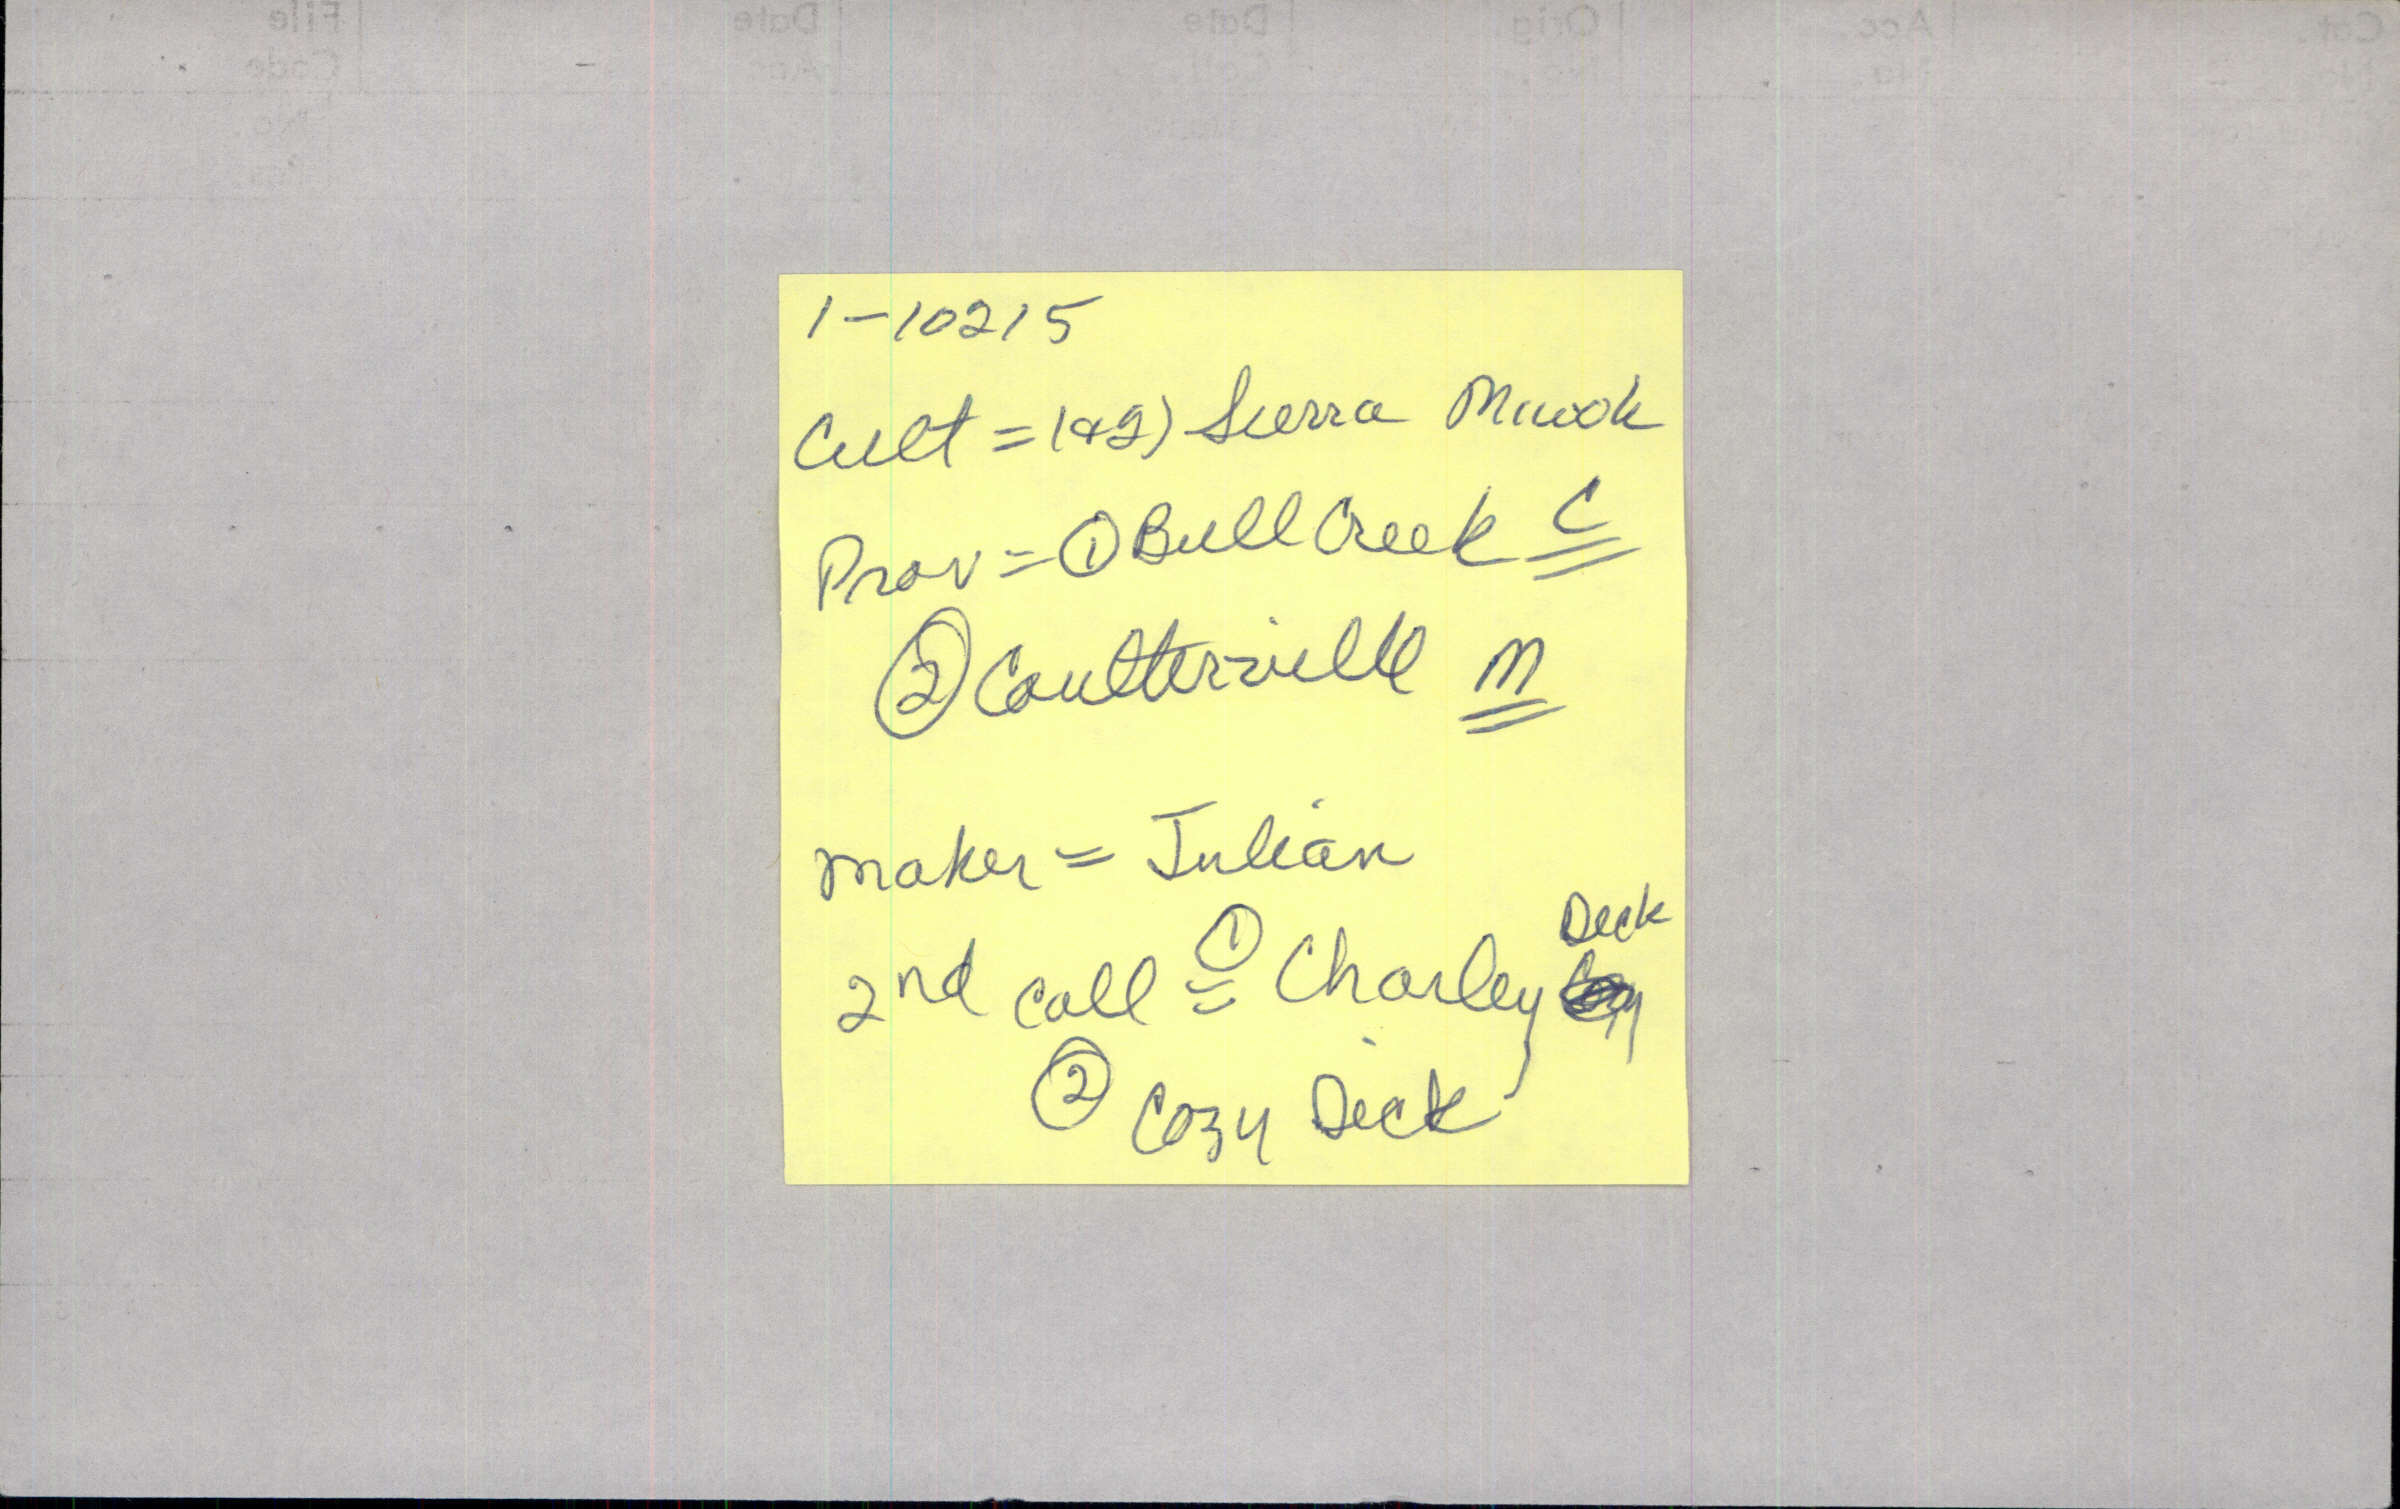 File Date Date Orig Acc. Cat.
Code Acc. Coll. No. No. No.
No.
1-10215
Cult = 1&2) Sierra Miwok
Prov = ① Bull Creek C
② Coulterville M
maker = Julian
Deck
2nd coll = ① Charley
② Cozy Dick